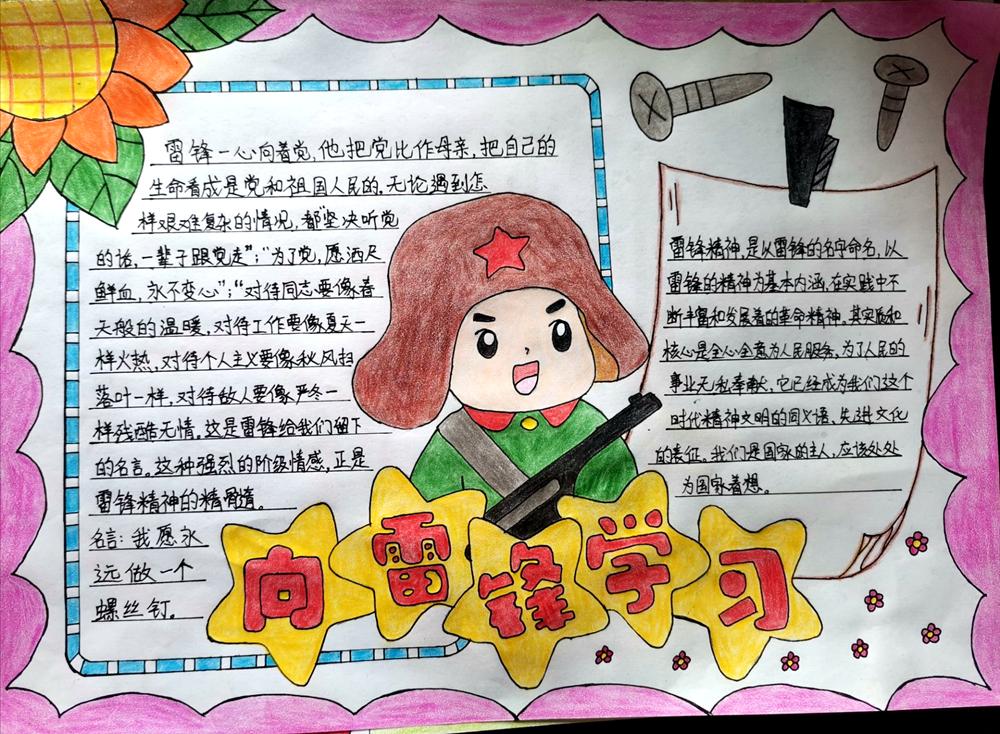 雷锋一心向着党,他把党比作母亲,把自己的
生命看成是党和祖国人民的,无论遇到怎
样艰难复杂的情况,都“坚决听党
的话,一辈子跟党走”;“为了党,愿洒尽
鲜血,永不变心”;“对待同志要像春
天般的温暖,对待工作要像夏天一
样火热,对待个人主义要像秋风扫
落叶一样,对待敌人要像严冬一
样残酷无情。这是雷锋给我们留下
的名言。这种强烈的阶级情感,正是
雷锋精神的精骨道。
名言:我愿永
远做一个
螺丝钉。
雷锋精神,是以雷锋的名字命名,以
雷锋的精神为基本内涵,在实践中不
断丰富和发展着的革命精神。其实质和
核心是全心全意为人民服务,为了人民的
事业无私奉献,它已经成为我们这个
时代精神文明的同义语、先进文化
的表征。我们是国家的主人,应该处处
为国家着想。
向雷锋学习